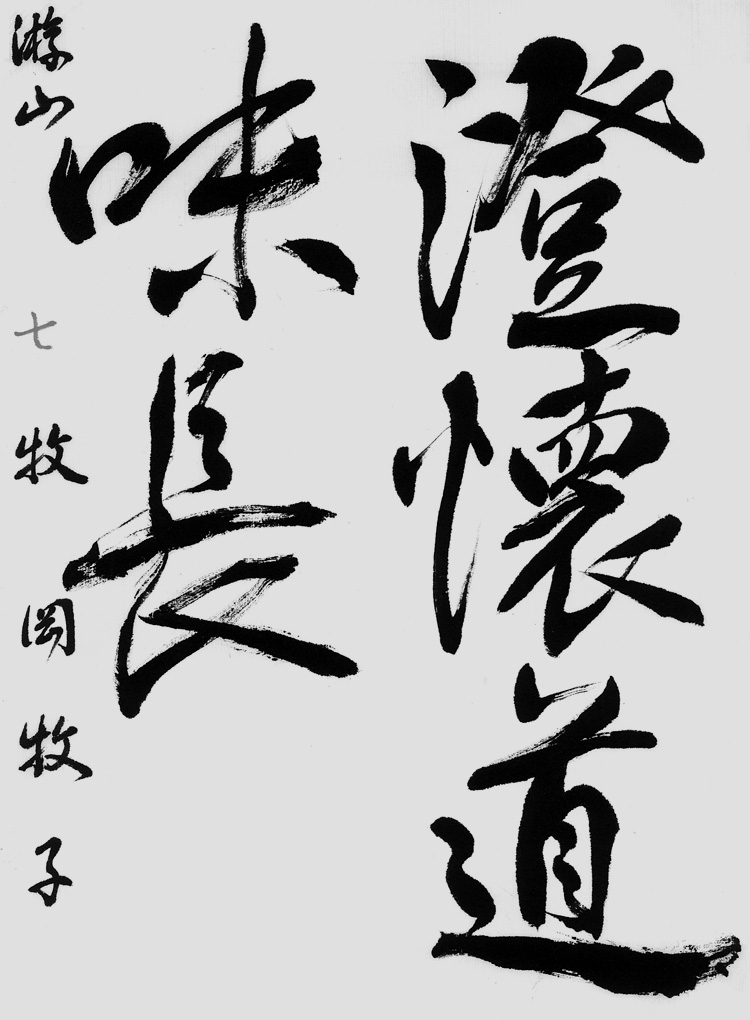 澄懷道
味長
游山 七 牧岡牧子